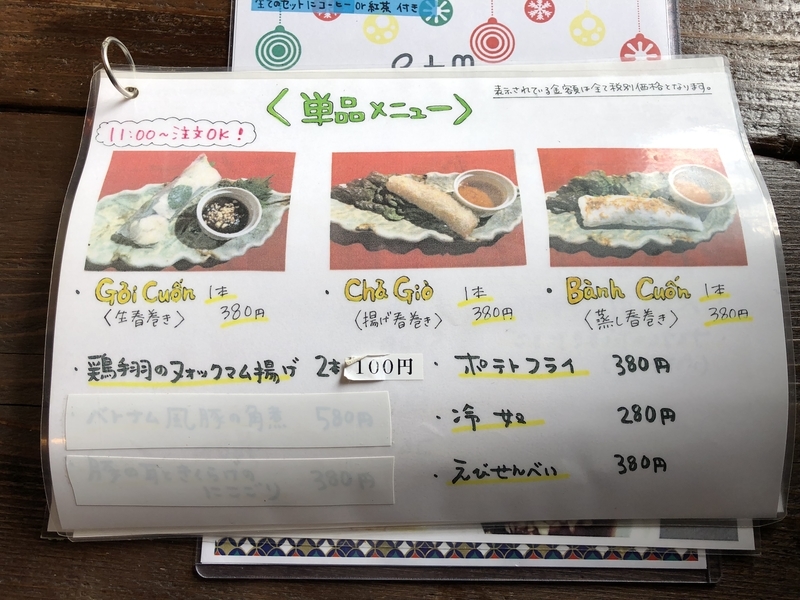 全てのセットにコーヒー or 紅茶 付き
表示されている金額は全て税別価格となります。
〈単品メニュー〉
11:00〜注文OK!
・Gỏi Cuốn 1本
〈生春巻き〉 380円
・Chả Giò 1本
〈揚げ春巻き〉 380円
・Bành Cuốn 1本
〈蒸し春巻き〉 380円
・鶏手羽のヌォックマム揚げ 2本 100円
ベトナム風豚の角煮 580円
380円
・ポテトフライ 380円
・冷奴 280円
・えびせんべい 380円